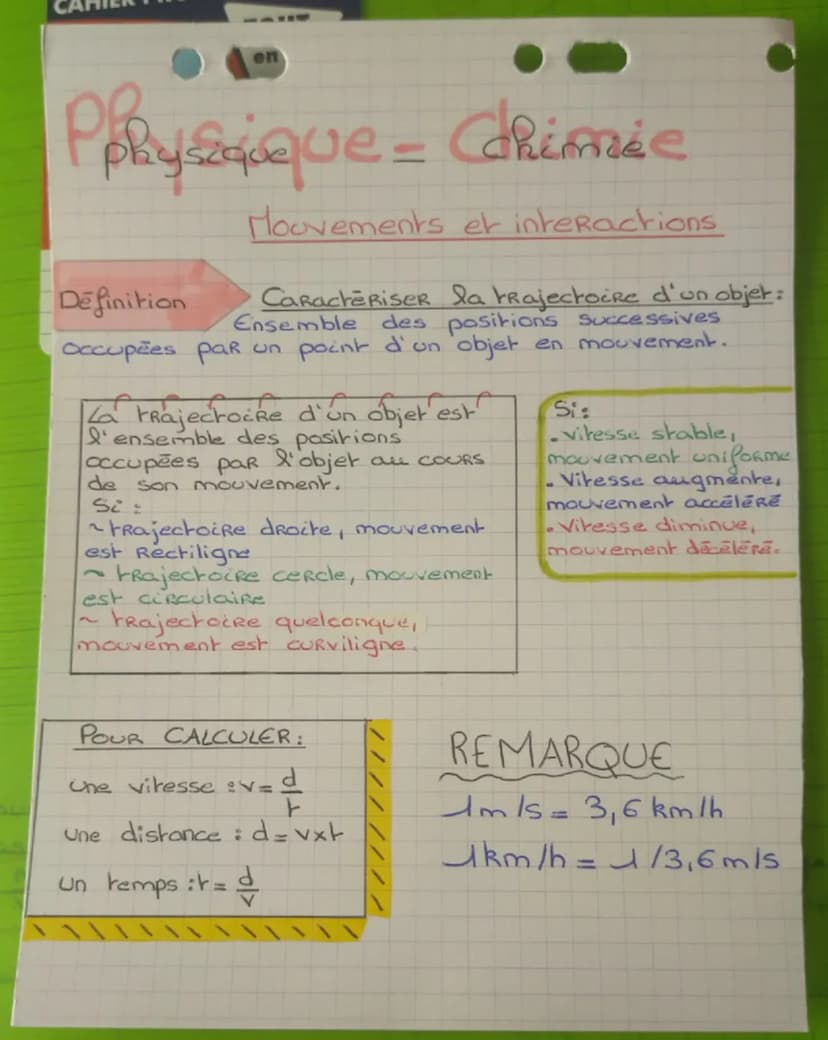 CAHIER
en
Physique - Chimie
Mouvements et interactions
Définition
Caractériser la trajectoire d'un objet :
Ensemble des positions successives
occupées par un point d'un objet en mouvement.
La trajectoire d'un objet est
l'ensemble des positions
occupées par l'objet au cours
de son mouvement.
Si :
~ trajectoire droite, mouvement
est rectiligne
~ trajectoire cercle, mouvement
est circulaire
~ trajectoire quelconque,
mouvement est curviligne.
Si :
. Vitesse stable,
mouvement uniforme
. Vitesse augmente,
mouvement accéléré
. Vitesse diminue,
mouvement décéléré.
POUR CALCULER :
une vitesse : v = d/t
une distance : d = v x t
un temps : t = d/v
REMARQUE
1 m/s = 3,6 km/h
1 km/h = 1/3,6 m/s